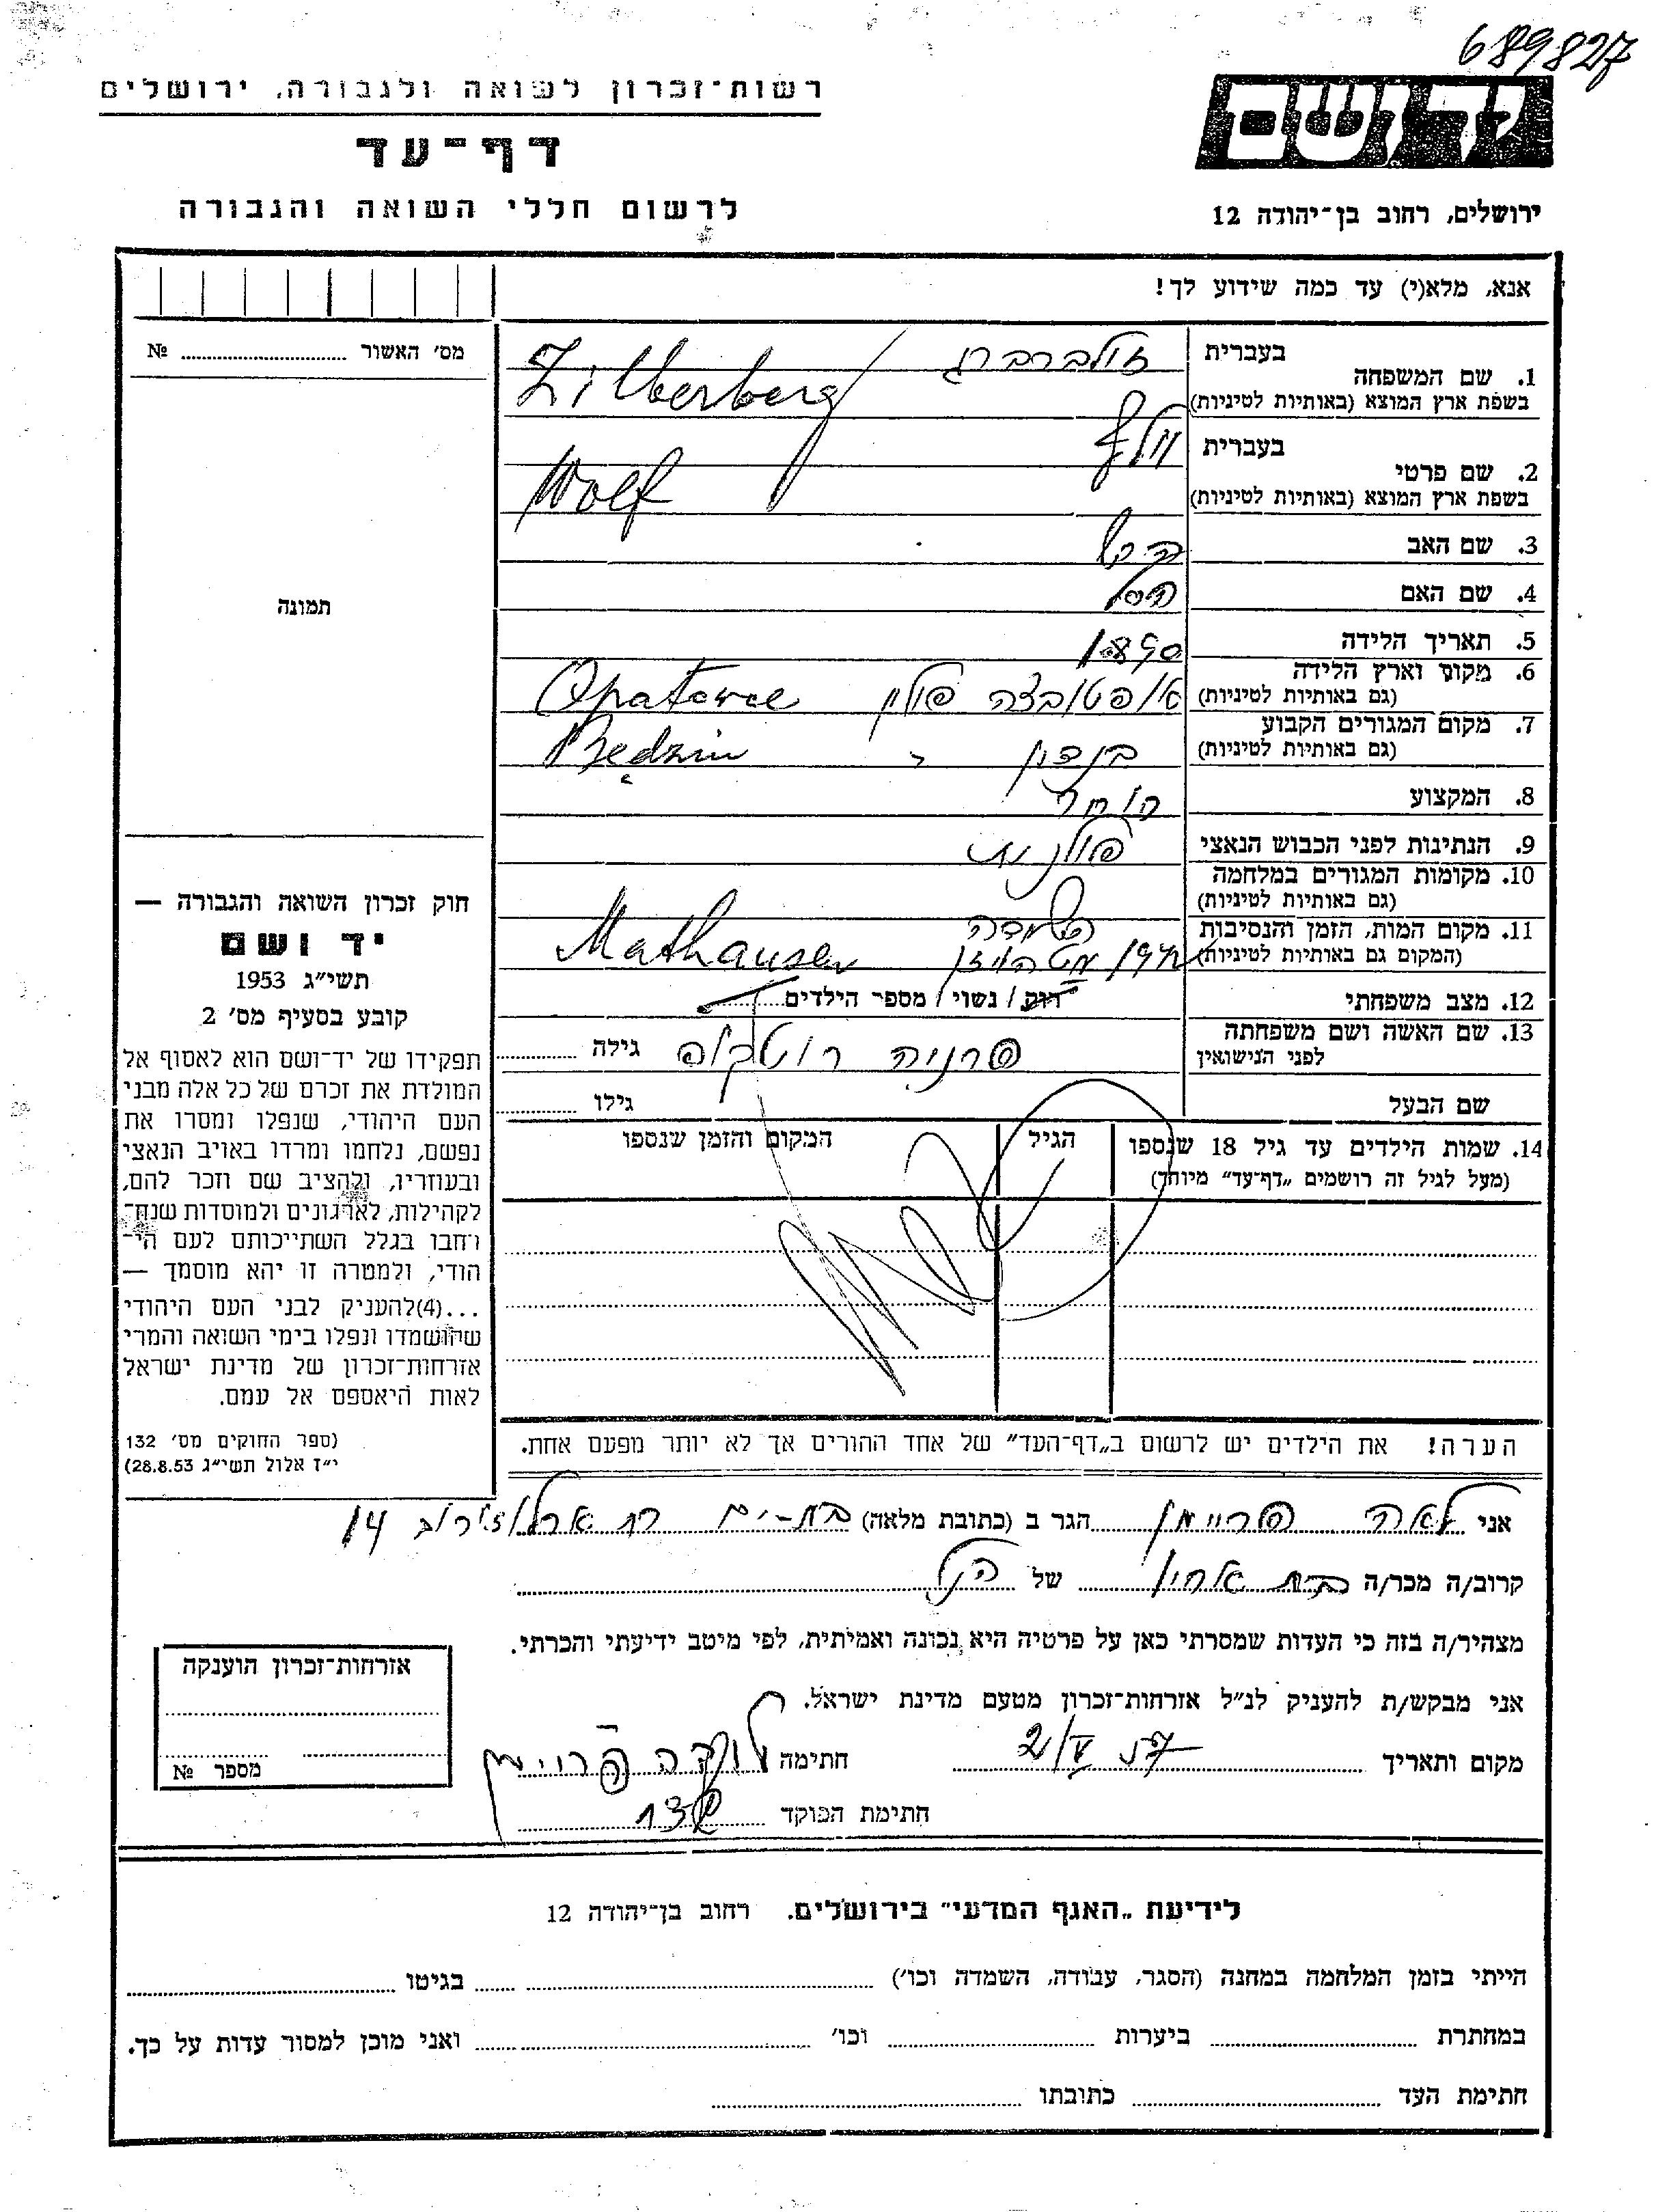 689827
יד ושם
רשות־זכרון לשואה ולגבורה, ירושלים
דף־עד
לרשום חללי השואה והגבורה
ירושלים, רחוב בן־יהודה 12
אנא, מלא(י) עד כמה שידוע לך!
מס׳ האשור № 
תמונה
חוק זכרון השואה והגבורה —
יד ושם
תשי״ג 1953
קובע בסעיף מס׳ 2
תפקידו של יד־ושם הוא לאסוף אל
המולדת את זכרם של כל אלה מבני
העם היהודי, שנפלו ומסרו את
נפשם, נלחמו ומרדו באויב הנאצי
ובעוזריו, ולהציב שם וזכר להם,
לקהילות, לארגונים ולמוסדות שנח־
רבו בגלל השתייכותם לעם הי־
הודי, ולמטרה זו יהא מוסמך —
...(4)להעניק לבני העם היהודי
שהושמדו ונפלו בימי השואה והמרי
אזרחות־זכרון של מדינת ישראל
לאות היאספם אל עמם.
(ספר החוקים מס׳ 132
י״ז אלול תשי״ג 28.8.53)
בעברית זילברברג
1. שם המשפחה
בשפת ארץ המוצא (באותיות לטיניות) Zilberberg
בעברית וולף
2. שם פרטי
בשפת ארץ המוצא (באותיות לטיניות) Wolf
3. שם האב
4. שם האם
5. תאריך הלידה 1890
6. מקום וארץ הלידה
(גם באותיות לטיניות) אופטובצה פולין Opatowce
7. מקום המגורים הקבוע
(גם באותיות לטיניות) בנדין Będzin
8. המקצוע סוחר
9. הנתינות לפני הכבוש הנאצי פולנית
10. מקומות המגורים במלחמה
(גם באותיות לטיניות)
11. מקום המות, הזמן והנסיבות השמדה
(המקום גם באותיות לטיניות) מטהאוזן Mathausen
12. מצב משפחתי רוק / נשוי / מספר הילדים
13. שם האשה ושם משפחתה
לפני הנישואין פרניה גילה
שם הבעל גילו
14. שמות הילדים עד גיל 18 שנספו הגיל המקום והזמן שנספו
(מעל לגיל זה רושמים „דף־עד״ מיוחד)
הערה! את הילדים יש לרשום ב„דף־העד״ של אחד ההורים אך לא יותר מפעם אחת.
אני לאה פריימן הגר ב (כתובת מלאה) בת־ים רח ארלוזורוב 14
קרוב/ה מכר/ה בת אחיו של הנ״ל
מצהיר/ה בזה כי העדות שמסרתי כאן על פרטיה היא נכונה ואמיתית, לפי מיטב ידיעתי והכרתי.
אני מבקש/ת להעניק לנ״ל אזרחות־זכרון מטעם מדינת ישראל.
מקום ותאריך חתימה
חתימת הפוקד
אזרחות־זכרון הוענקה
מספר №
לידיעת „האגף המדעי״ בירושלים. רחוב בן־יהודה 12
הייתי בזמן המלחמה במחנה (הסגר, עבודה, השמדה וכו׳) בגיטו
במחתרת ביערות וכו׳ ואני מוכן למסור עדות על כך.
חתימת העד כתובתו